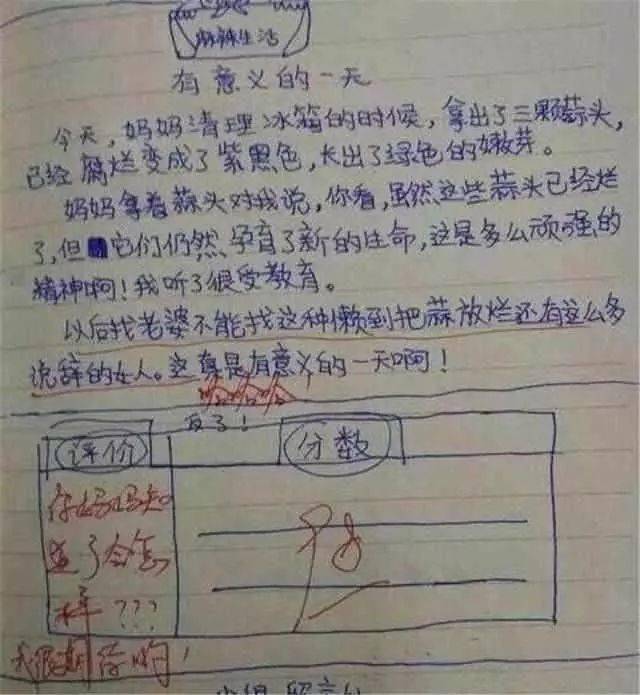 麻辣生活
有意义的一天
今天,妈妈清理冰箱的时候,拿出了三颗蒜头,
已经腐烂变成了紫黑色,长出了绿色的嫩芽。
妈妈拿着蒜头对我说,你看,虽然这些蒜头已经烂
了,但它们仍然孕育了新的生命,这是多么顽强的
精神啊!我听了很受教育。
以后找老婆不能找这种懒到把蒜放烂还有这么多
说辞的女人。这真是有意义的一天啊!
哈哈哈
反了!
评价
分数
你妈妈知
道了会怎
样???
你哟!